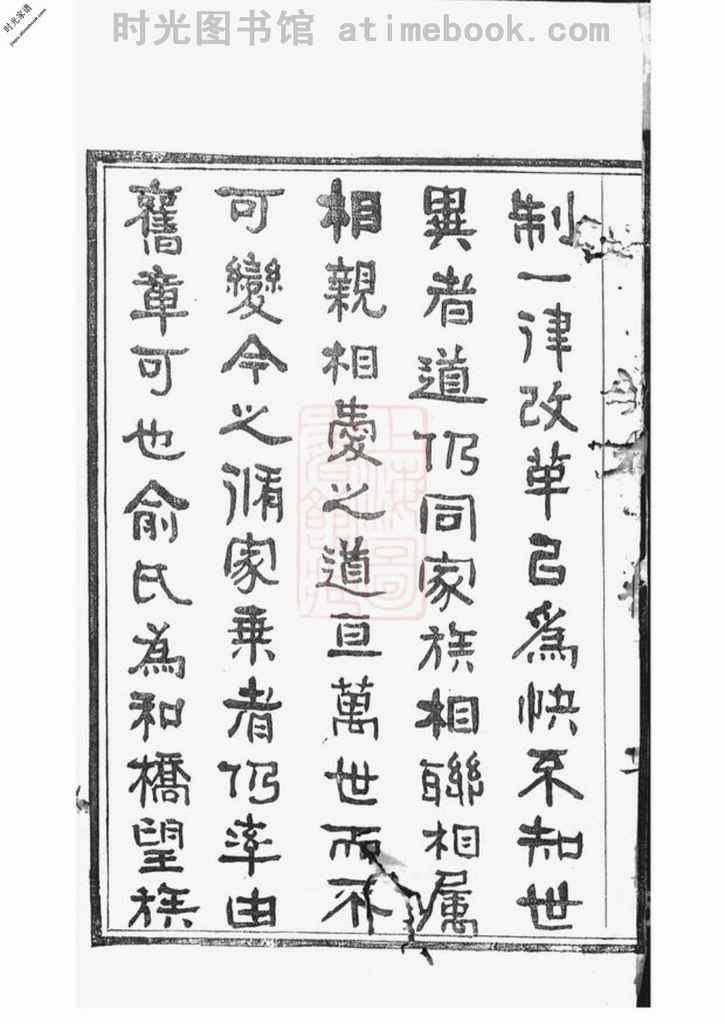 时光图书馆 atimebook.com
时光家谱
制一律改革㠯為快不知世
異者道仍同家族相聯相属
相親相愛之道亘萬世而不
可變今之脩家乗者仍率由
舊章可也俞氏為和橋望族